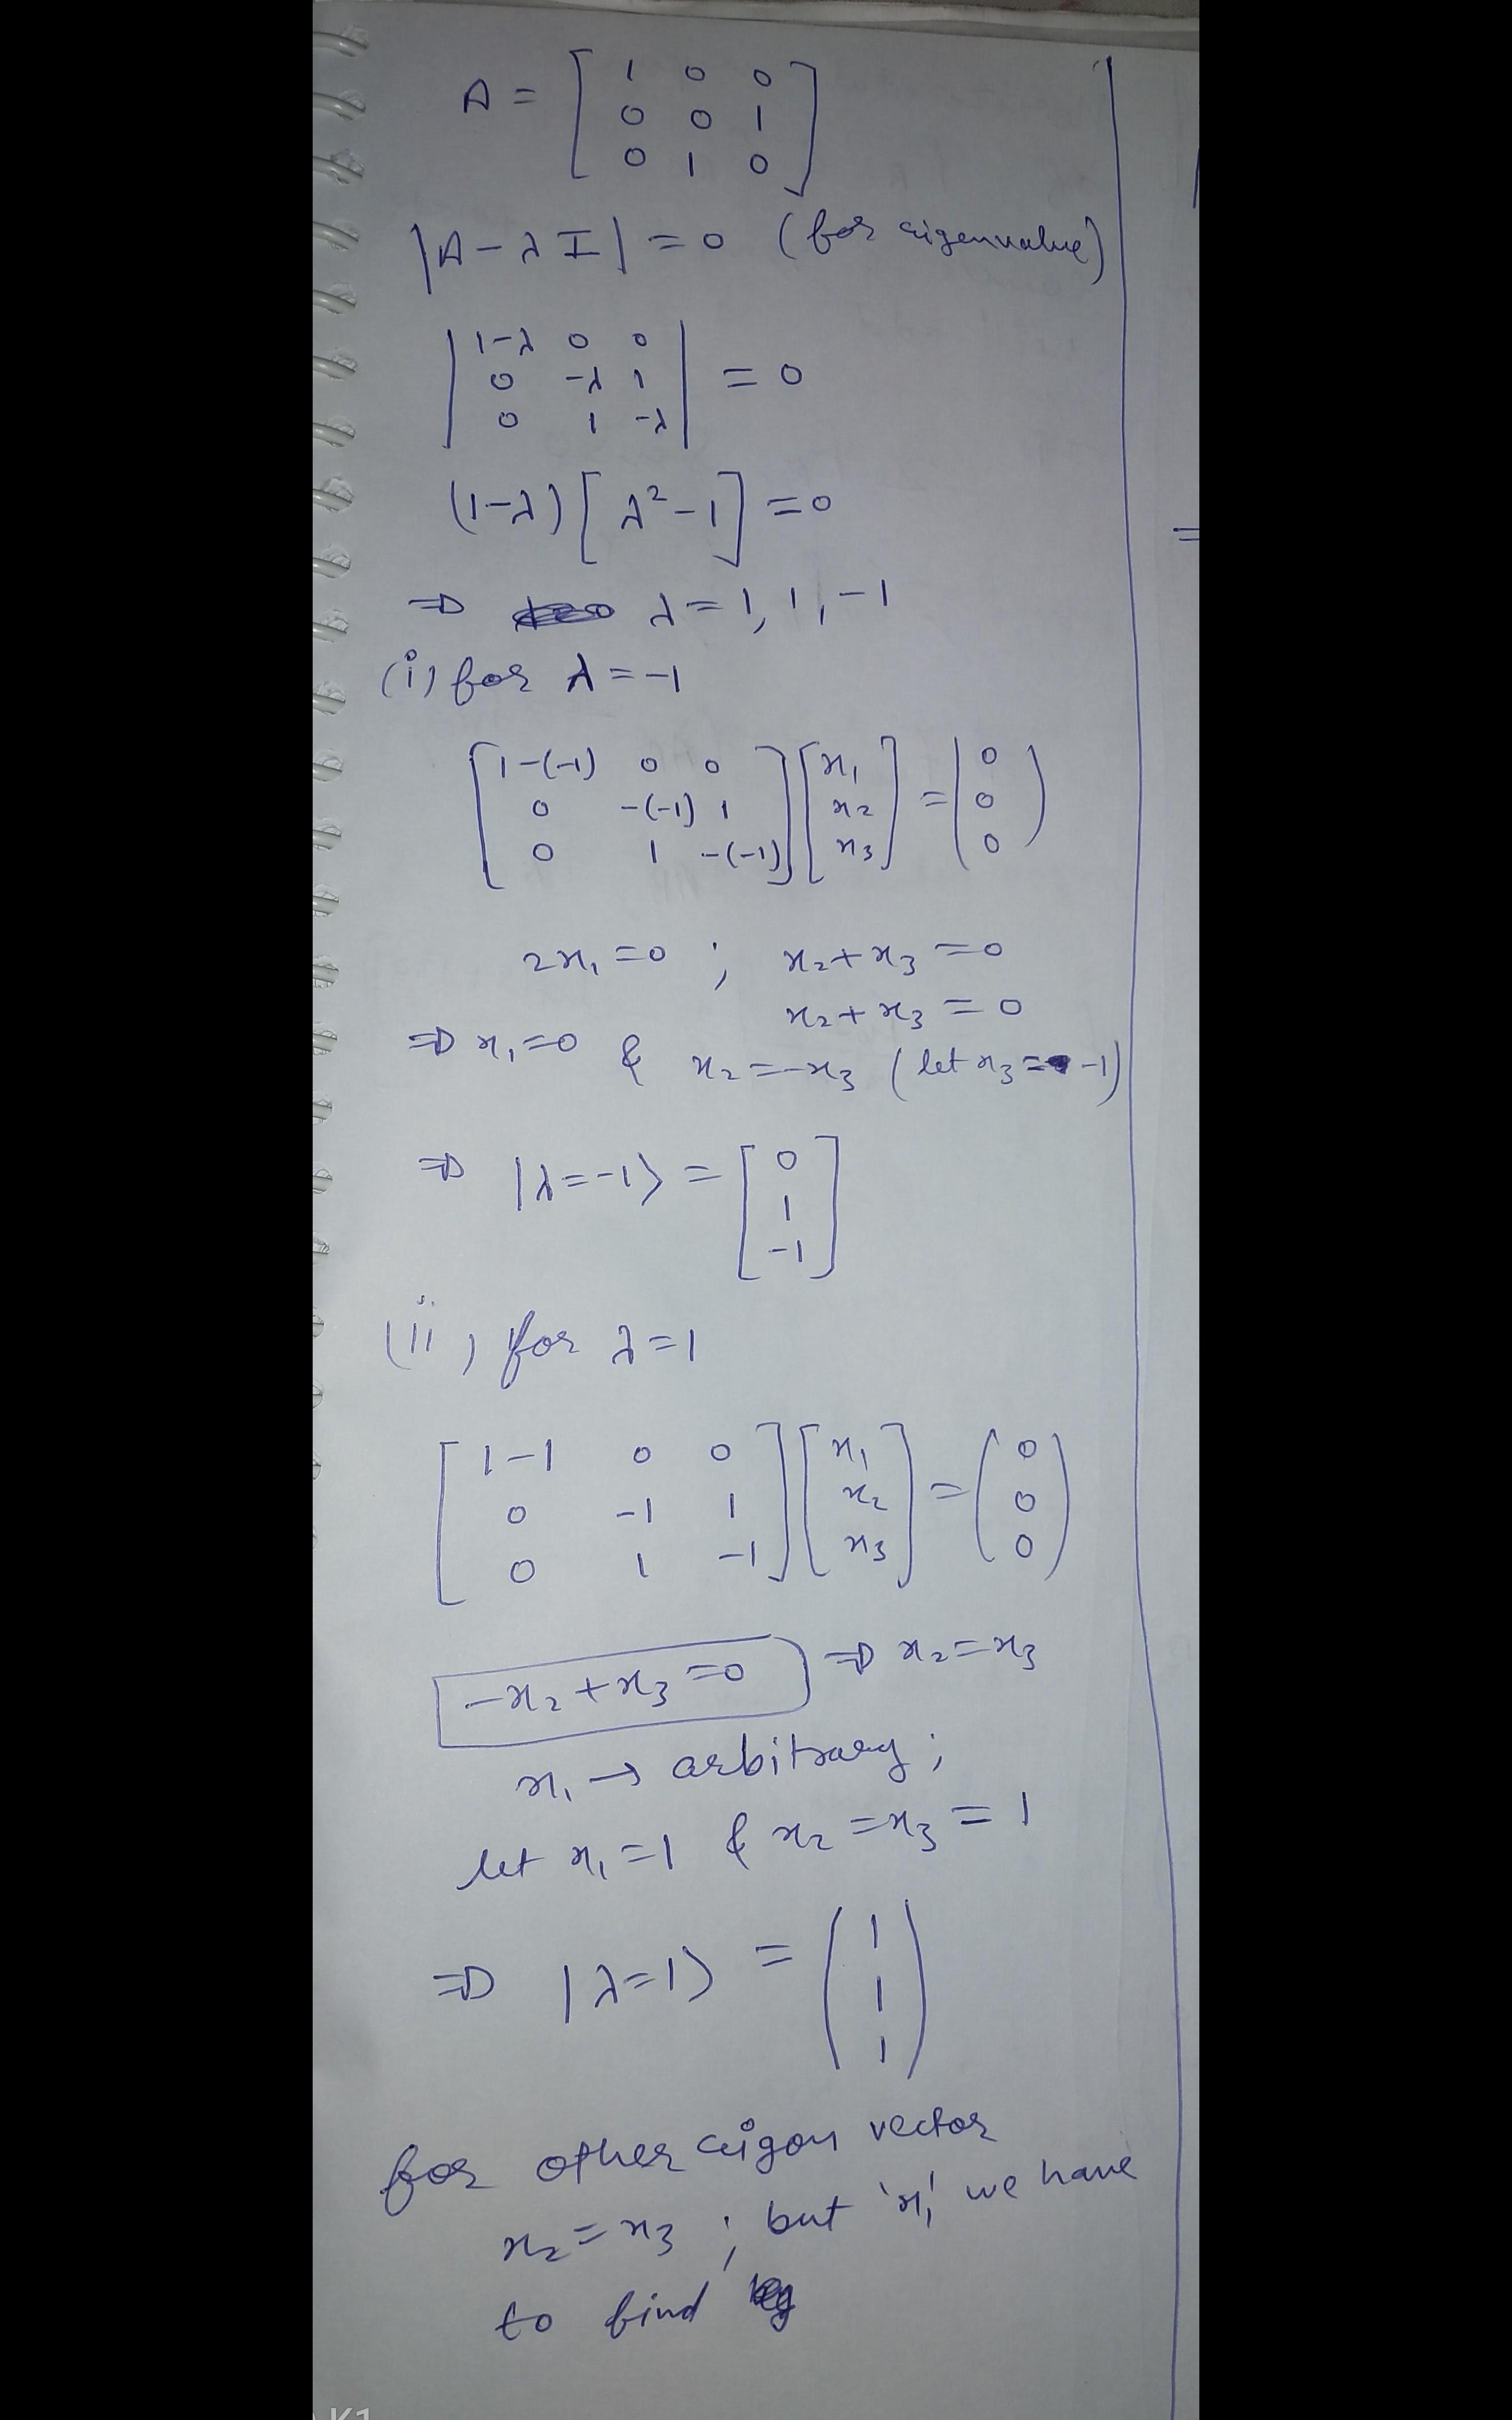 A = [ 1 0 0
0 0 1
0 1 0 ]
|A - λI| = 0 (for eigenvalue)
| 1-λ 0 0
0 -λ 1 | = 0
0 1 -λ |
(1-λ)[λ² - 1] = 0
⇒ λ = 1, 1, -1
(i) for λ = -1
[ 1-(-1) 0 0 ] [ x₁ ] = ( 0 )
0 -(-1) 1 x₂ 0
0 1 -(-1) x₃ 0
2x₁ = 0 ; x₂ + x₃ = 0
x₂ + x₃ = 0
⇒ x₁ = 0 & x₂ = -x₃ (let x₃ = -1)
⇒ |λ = -1⟩ = [ 0
1
-1 ]
(ii) for λ = 1
[ 1-1 0 0 ] [ x₁ ] = ( 0 )
0 -1 1 x₂ 0
0 1 -1 x₃ 0
-x₂ + x₃ = 0 ⇒ x₂ = x₃
x₁ → arbitrary ;
let x₁ = 1 & x₂ = x₃ = 1
⇒ |λ = 1⟩ = ( 1
1
1 )
for other eigen vector
x₂ = x₃ ; but 'x₁' we have
to find